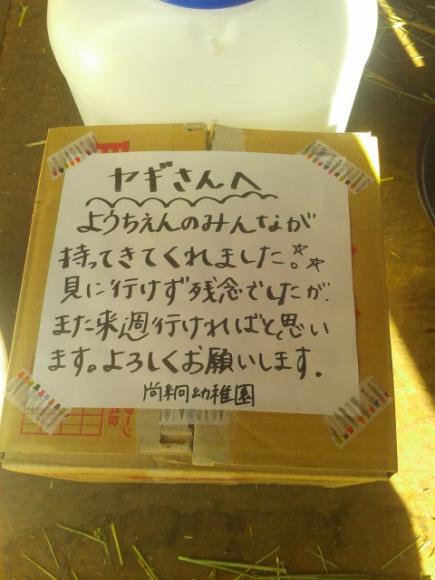 ヤギさんへ
ようちえんのみんなが
持ってきてくれました。☆☆
見に行けず残念でしたが、
また来週行ければと思い
ます。よろしくお願いします.
尚絅幼稚園